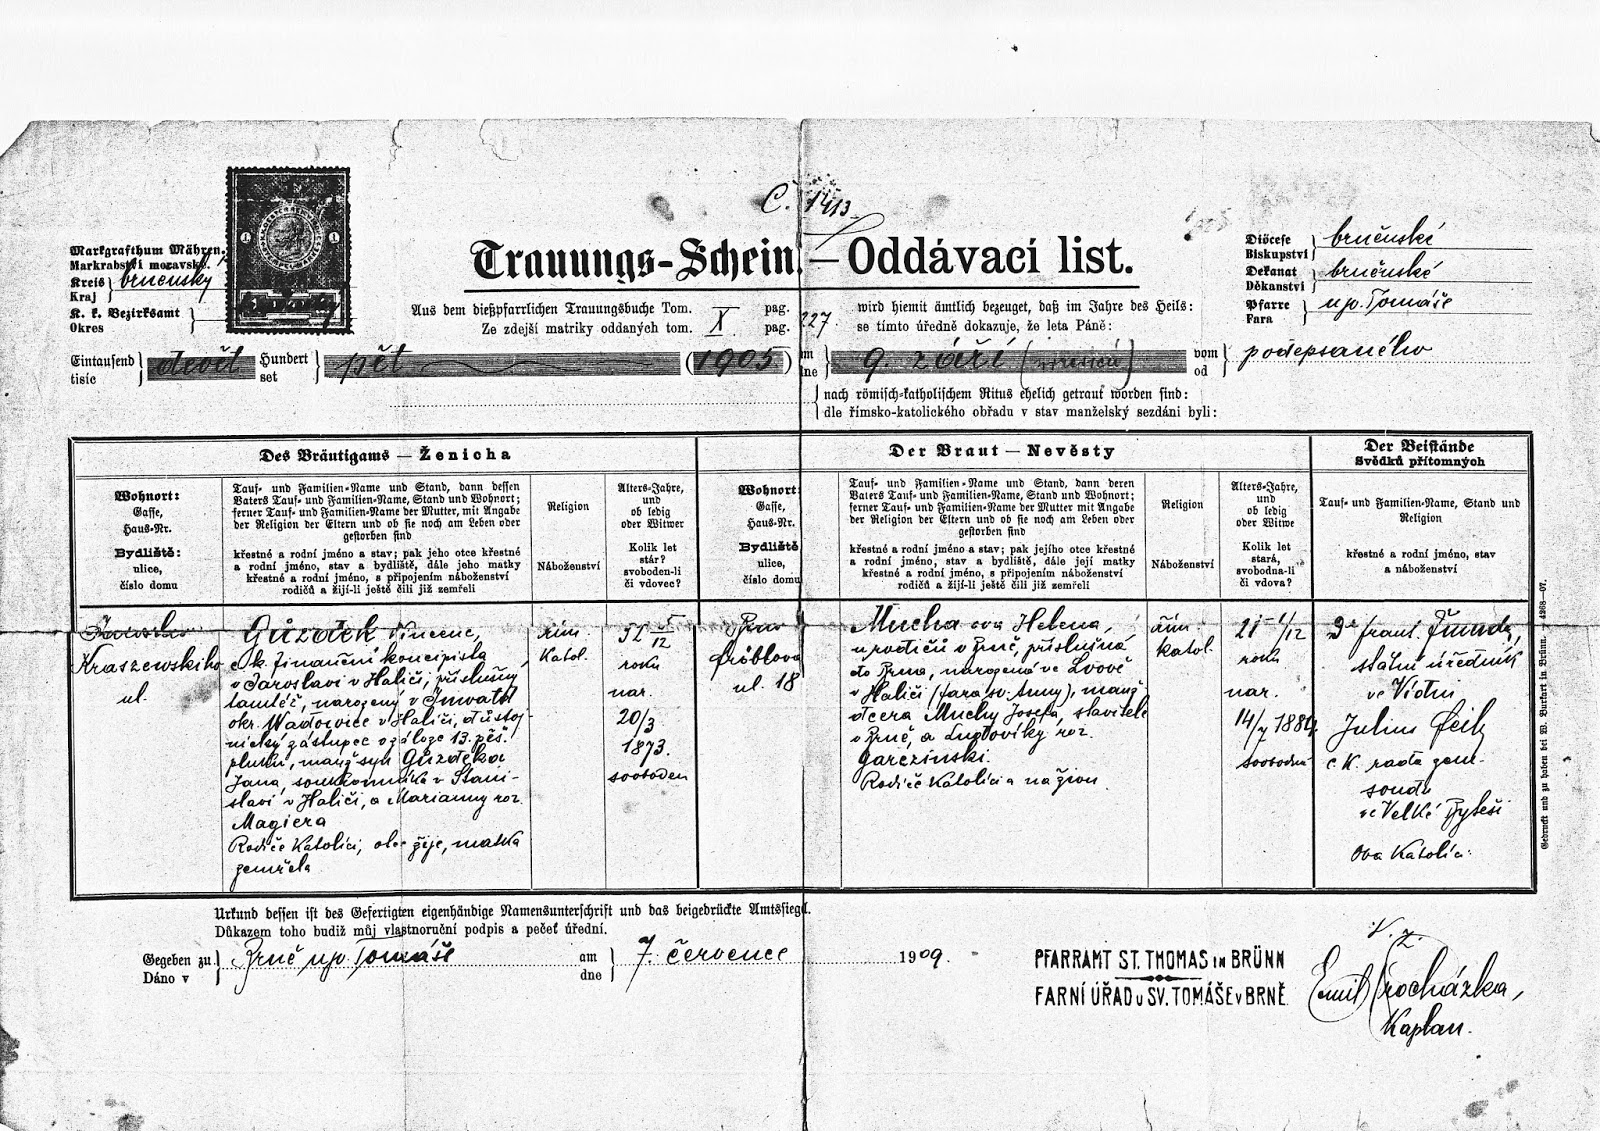 Č. 1413
Markgrafthum Mähren.
Markrabství moravské.
Kreis
Kraj
brněnský
K. k. Bezirksamt
Okres
1 1
Trauungs-Schein. — Oddávací list.
Diöcese
Biskupství
brněnské
Dekanat
Děkanství
brněnské
Pfarre
Fara
u sv. Tomáše
Aus dem dießpfarrlichen Trauungsbuche Tom. pag. wird hiemit ämtlich bezeuget, daß im Jahre des Heils:
Ze zdejší matriky oddaných tom. X pag. 227. se tímto úředně dokazuje, že leta Páně:
Eintausend
tisíc
devět
Hundert
set
pět
(1905)
im
dne
9. září
vom
od
podepsaného
nach römisch-katholischem Ritus ehelich getraut worden sind:
dle římsko-katolického obřadu v stav manželský sezdáni byli:
Des Bräutigams — Ženicha
Der Braut — Nevěsty
Der Beistände
Svědků přítomných
Wohnort:
Gasse,
Haus-Nr.
Bydliště:
ulice,
číslo domu
Tauf- und Familien-Name und Stand, dann dessen
Vaters Tauf- und Familien-Name, Stand und Wohnort;
ferner Tauf- und Familien-Name der Mutter, mit Angabe
der Religion der Eltern und ob sie noch am Leben oder
gestorben sind
křestné a rodní jméno a stav; pak jeho otce křestné
a rodní jméno, stav a bydliště, dále jeho matky
křestné a rodní jméno, s připojením náboženství
rodičů a žijí-li ještě čili již zemřeli
Religion
Náboženství
Alters-Jahre,
und
ob ledig
oder Witwer
Kolik let
stár?
svoboden-li
či vdovec?
Wohnort:
Gasse,
Haus-Nr.
Bydliště
ulice,
číslo domu
Tauf- und Familien-Name und Stand, dann deren
Vaters Tauf- und Familien-Name, Stand und Wohnort;
ferner Tauf- und Familien-Name der Mutter, mit Angabe
der Religion der Eltern und ob sie noch am Leben oder
gestorben sind
křestné a rodní jméno a stav; pak jejího otce křestné
a rodní jméno, stav a bydliště, dále její matky
křestné a rodní jméno, s připojením náboženství
rodičů a žijí-li ještě čili již zemřeli
Religion
Náboženství
Alters-Jahre,
und
ob ledig
oder Witwe
Kolik let
stará,
svobodna-li
či vdova?
Tauf- und Familien-Name, Stand und
Religion
křestné a rodní jméno, stav
a náboženství
Kraszewskiho
ul.
Gůzdek Vincenc,
c. k. finanční koncipista
v Jaroslavi v Haliči, příslušný
tamtéž, narozený v Inwald
okr. Wadowice v Haliči, důstoj-
nický zástupce v záloze 13. pěš.
pluku, manž. syn Gůzdeka
Jana, soukromníka v Stani-
slavi v Haliči, a Marianny roz.
Magiera
Rodiče Katolíci, otec žije, matka
zemřela
řím.
Katol.
32 5/12
roků
nar.
20/3
1873.
svoboden
Brno
Fröblova
ul. 18
Mucha ova Helena,
u rodičů v Brně, příslušná
do Brna, narozená ve Lvově
v Haliči (fara sv. Anny), manž.
dcera Muchy Josefa, stavitele
v Brně, a Ludoviky roz.
Garczinski.
Rodiče Katolíci a na živu
řím.
katol.
21 1/12
roků
nar.
14/7 1884
svobodna
Dr. Frant. Šmunda,
státní úředník
ve Vídni
Julius Feik
c. k. rada zem.
soudu
ve Velké Byteši
Oba Katolíci.
Gedruckt und zu haben bei W. Burkart in Brünn. 4268—07.
Urkund dessen ist des Gefertigten eigenhändige Namensunterschrift und das beigedrückte Amtssiegel.
Důkazem toho budiž můj vlastnoruční podpis a pečeť úřední.
Gegeben zu
Dáno v
Brně u sv. Tomáše
am
dne
7. července
1909.
PFARRAMT ST. THOMAS IN BRÜNN
FARNÍ ÚŘAD U SV. TOMÁŠE V BRNĚ.
V. z.
Emil Procházka,
Kaplan.